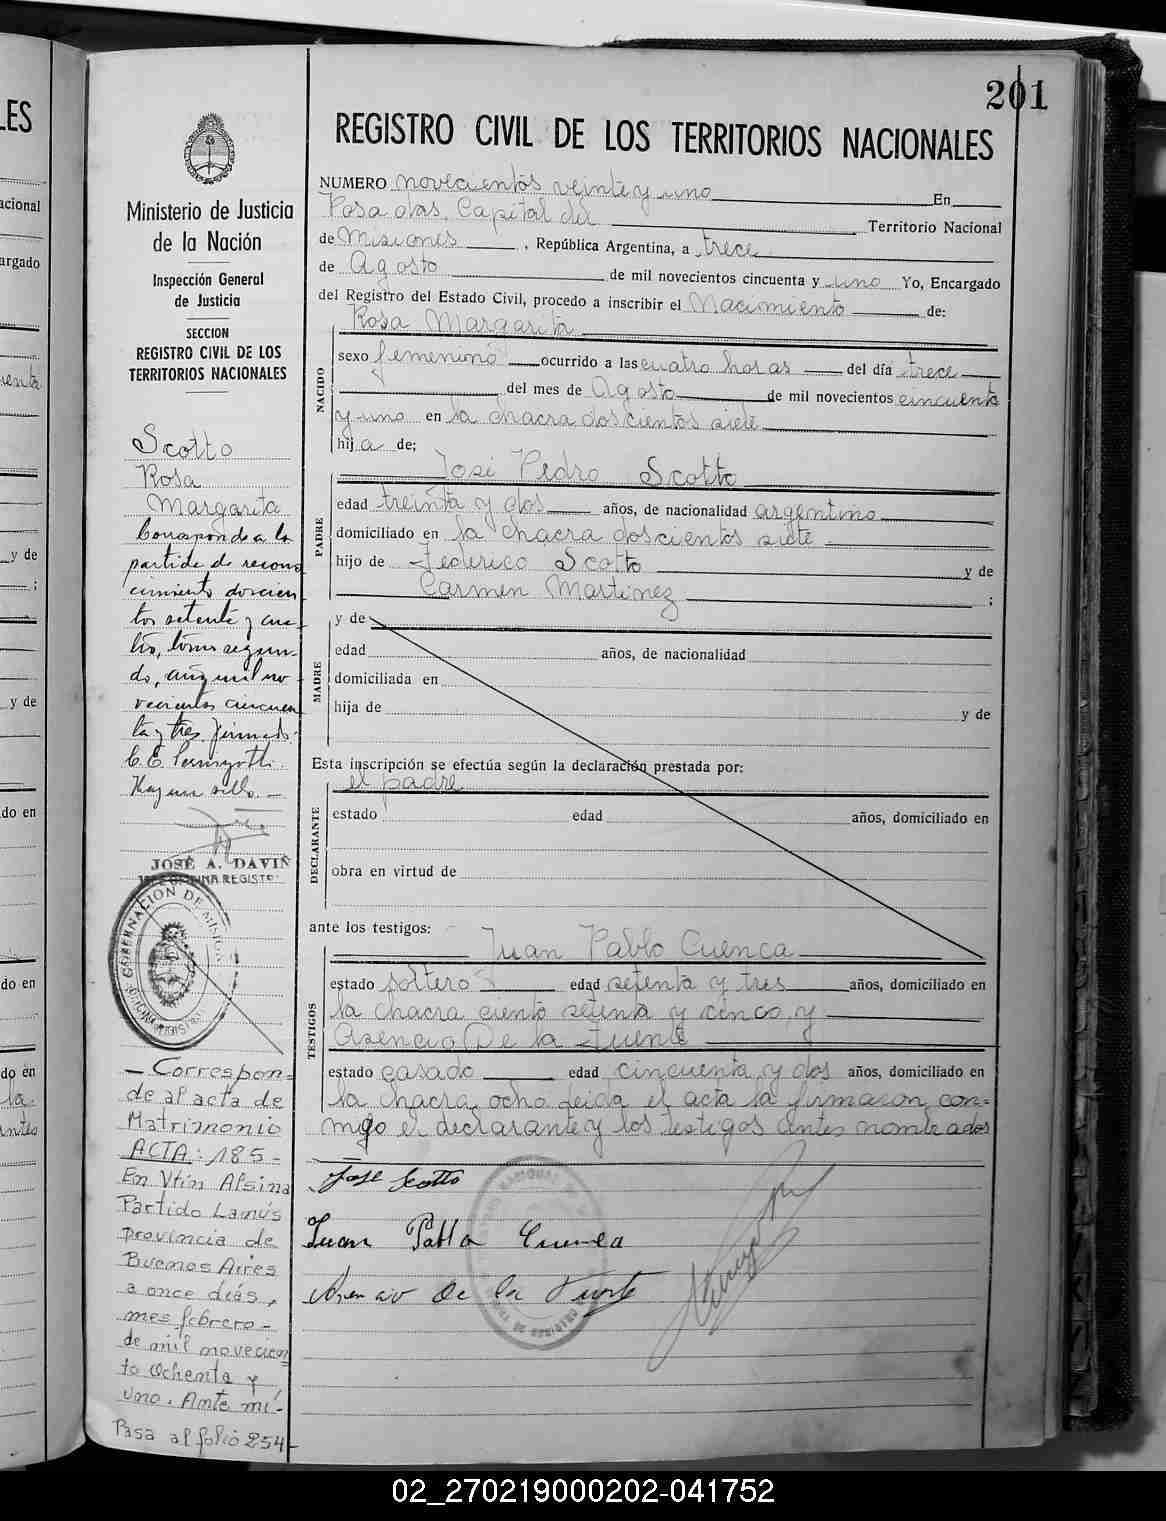 201
REGISTRO CIVIL DE LOS TERRITORIOS NACIONALES
Ministerio de Justicia
de la Nación
Inspección General
de Justicia
SECCION
REGISTRO CIVIL DE LOS
TERRITORIOS NACIONALES
Scotto
Rosa
Margarita
Corresponde a la
partida de recono
cimiento doscien
tos setenta y cua
tro, tomo segun-
do, año mil no-
vecientos cincuen
ta y tres. firmado:
Hay un sello. —
JOSÉ A. DAVIÑ
GOBERNACION DE MISIONES
— Correspon-
de al acta de
Matrimonio
ACTA: 185 -
En Vtín Alsina
Partido Lanús
provincia de
Buenos Aires
a once días,
mes febrero -
de mil novecien
to ochenta y
uno. Ante mí-
Pasa al folio 254-
NUMERO novecientos veinte y uno En
Posadas, Capital del Territorio Nacional
de Misiones, República Argentina, a trece
de Agosto de mil novecientos cincuenta y uno Yo, Encargado
del Registro del Estado Civil, procedo a inscribir el Nacimiento de:
Rosa Margarita
NACIDO
sexo femenino ocurrido a las cuatro horas del día trece
del mes de Agosto de mil novecientos cincuenta
y uno en la chacra doscientos siete
hija de;
José Pedro Scotto
PADRE
edad treinta y dos años, de nacionalidad argentino
domiciliado en la chacra doscientos siete
hijo de Federico Scotto y de
Carmen Martinez ;
MADRE
y de
edad años, de nacionalidad
domiciliada en
hija de y de
Esta inscripción se efectúa según la declaración prestada por:
el padre
DECLARANTE
estado edad años, domiciliado en
obra en virtud de
ante los testigos:
Juan Pablo Cuenca
TESTIGOS
estado soltero edad setenta y tres años, domiciliado en
la chacra ciento setenta y cinco, y
Asencio De la Fuente
estado casado edad cincuenta y dos años, domiciliado en
la chacra ocho leida el acta la firmaron con-
migo el declarante y los testigos antes nombrados
José Scotto
Juan Pablo Cuenca
Asencio De la Fuente
02_270219000202-041752